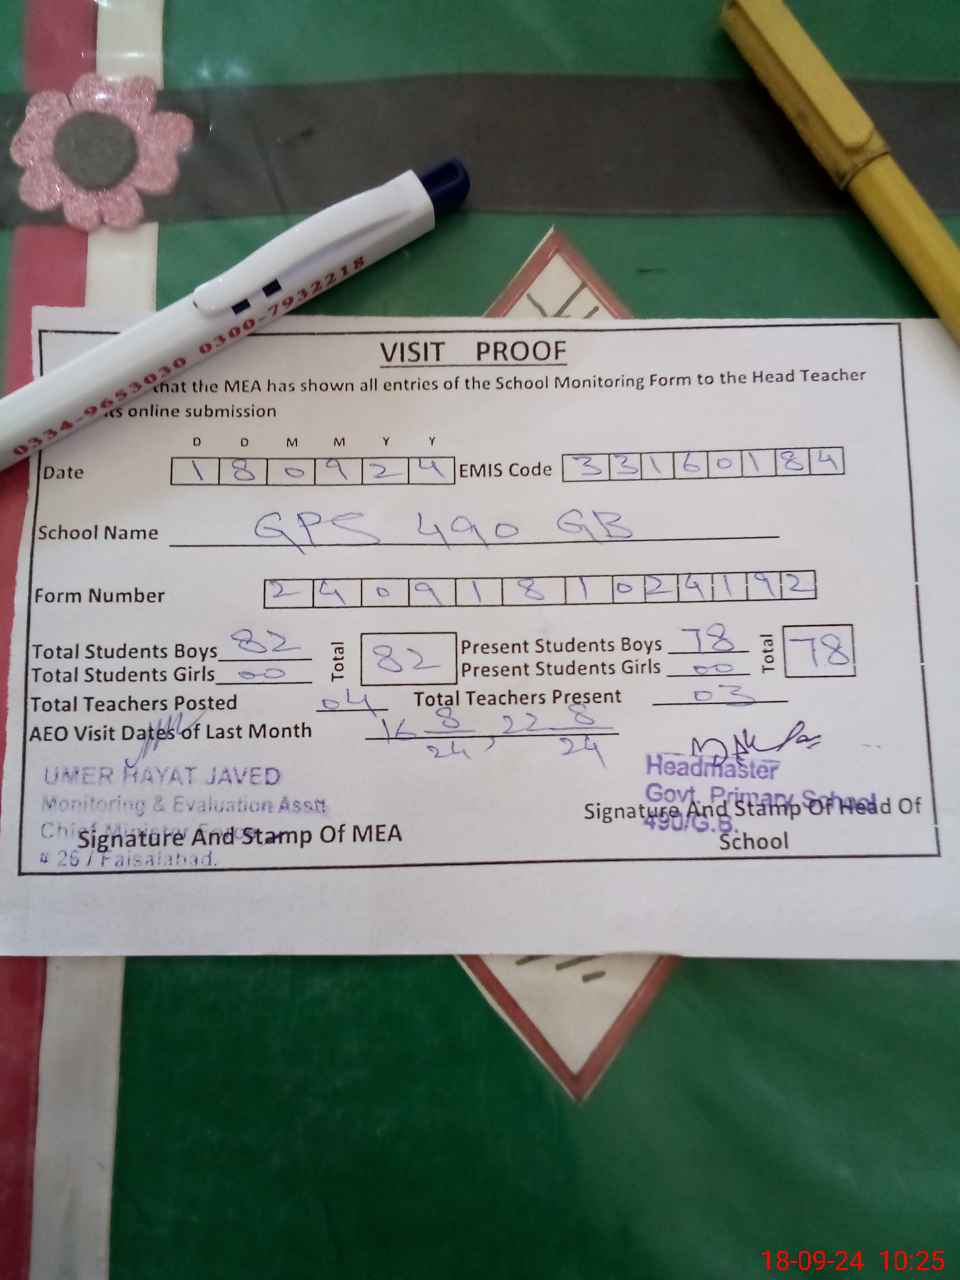 0334-9653030 0300-7932218
VISIT PROOF
that the MEA has shown all entries of the School Monitoring Form to the Head Teacher
its online submission
D D M M Y Y
Date 1 8 0 9 2 4 EMIS Code 3 3 1 6 0 1 8 4
School Name GPS 490 GB
Form Number 2 4 0 9 1 8 1 0 2 4 1 9 2
Total Students Boys 82 Total 82 Present Students Boys 78 Total 78
Total Students Girls 00 Present Students Girls 00
Total Teachers Posted 04 Total Teachers Present 03
AEO Visit Dates of Last Month 16 8/24, 22 8/24
UMER HAYAT JAVED
Monitoring & Evaluation Asstt
Chief Minister
# 26 / Faisalabad.
Signature And Stamp Of MEA
Headmaster
Govt. Primary School
490/G.B.
Signature And Stamp Of Head Of
School
18-09-24 10:25